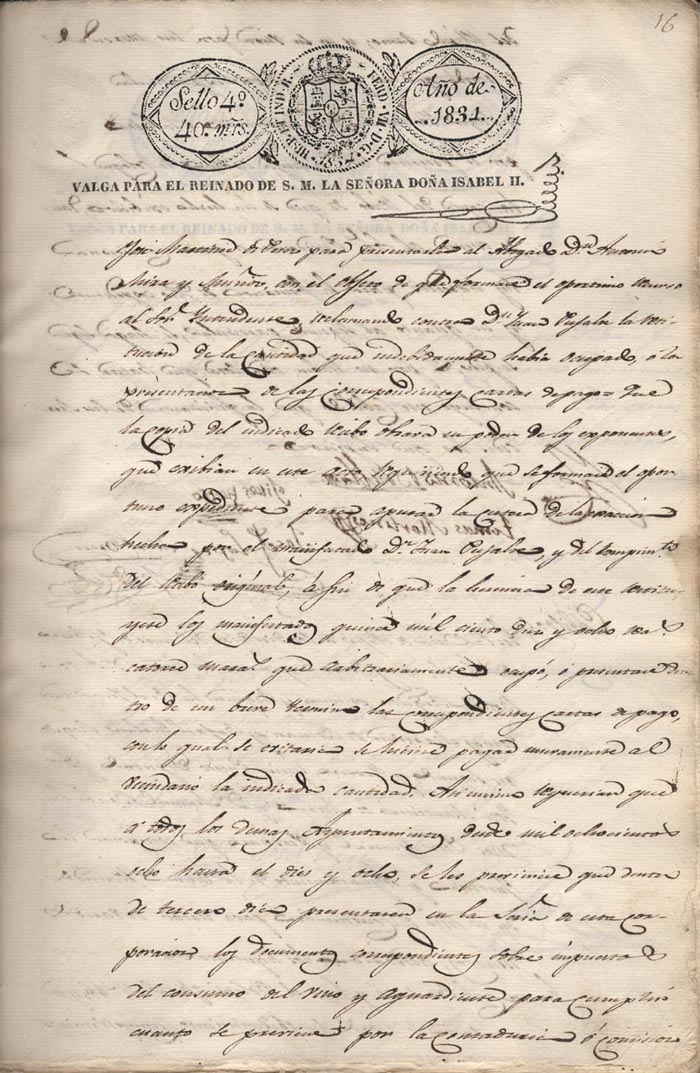 16
Sello 4º
40. mrs.
HISP. ET IND. R. FERD. VII. D. G.
Año de
1834.
VALGA PARA EL REINADO DE S. M. LA SEÑORA DOÑA ISABEL II.
José Martinez de para presentarla al Abogado Dn. Antonio
Mira y Muñoz, con el objeto de que formase el oportuno recurso
al Sor. Yntendente, reclamando contra Dn. Juan Pujalte la res
titucion de la cantidad que indebidamente habia ocupado, ó la
presentacion de las correspondientes cartas de pago = Que
la copia del indicado recibo obrara en poder de los exponentes,
que exibian en este acto requiriendo que se formase el opor
tuno expediente para apurar la certeza de la
hecha por el manifestado Dn. Juan Pujalte, y del
del recibo original, á fin de que la herencia de este
los manifestados quince mil ciento diez y ocho rs.
catorce maravs. que arbitrariamente ocupó, ó presentase den
tro de un breve termino las correspondientes cartas de pago,
con lo qual se evitaria se hiciese pagar nuevamente al
vecindario la indicada cantidad. Asimismo requerian que
á todos los demas Ayuntamientos desde mil ochocientos
ocho hasta el diez y ocho, se les previniese que dentro
de tercero dia presentasen en la Sria. de esta cor
poracion los documentos correspondientes sobre impuestos
del consumo del vino y aguardiente para cumplir
cuanto se previene por la contaduria ó comision